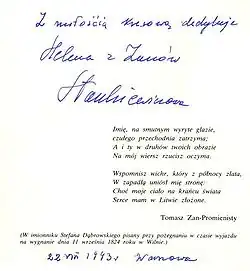 Z miłością kresową dedykuje
Helena z Zanów
Stankiewiczowa
Imię, na smutnym wyryte głazie,
czułego przechodnia zatrzyma;
A i ty w druhów twoich obrazie
Na mój wiersz rzucisz oczyma.
Wspomnisz wichr, który z północy zlata,
W zapadłą uniósł mię stronę;
Choć moje ciało na krańcu świata
Serce mam w Litwie złożone.
Tomasz Zan-Promienisty
(W imionniku Stefana Dąbrowskiego pisany przy pożegnaniu w czasie wyjazdu
na wygnanie dnia 11 września 1824 roku w Wilnie.)
22 VIII 1993 r. Warszawa